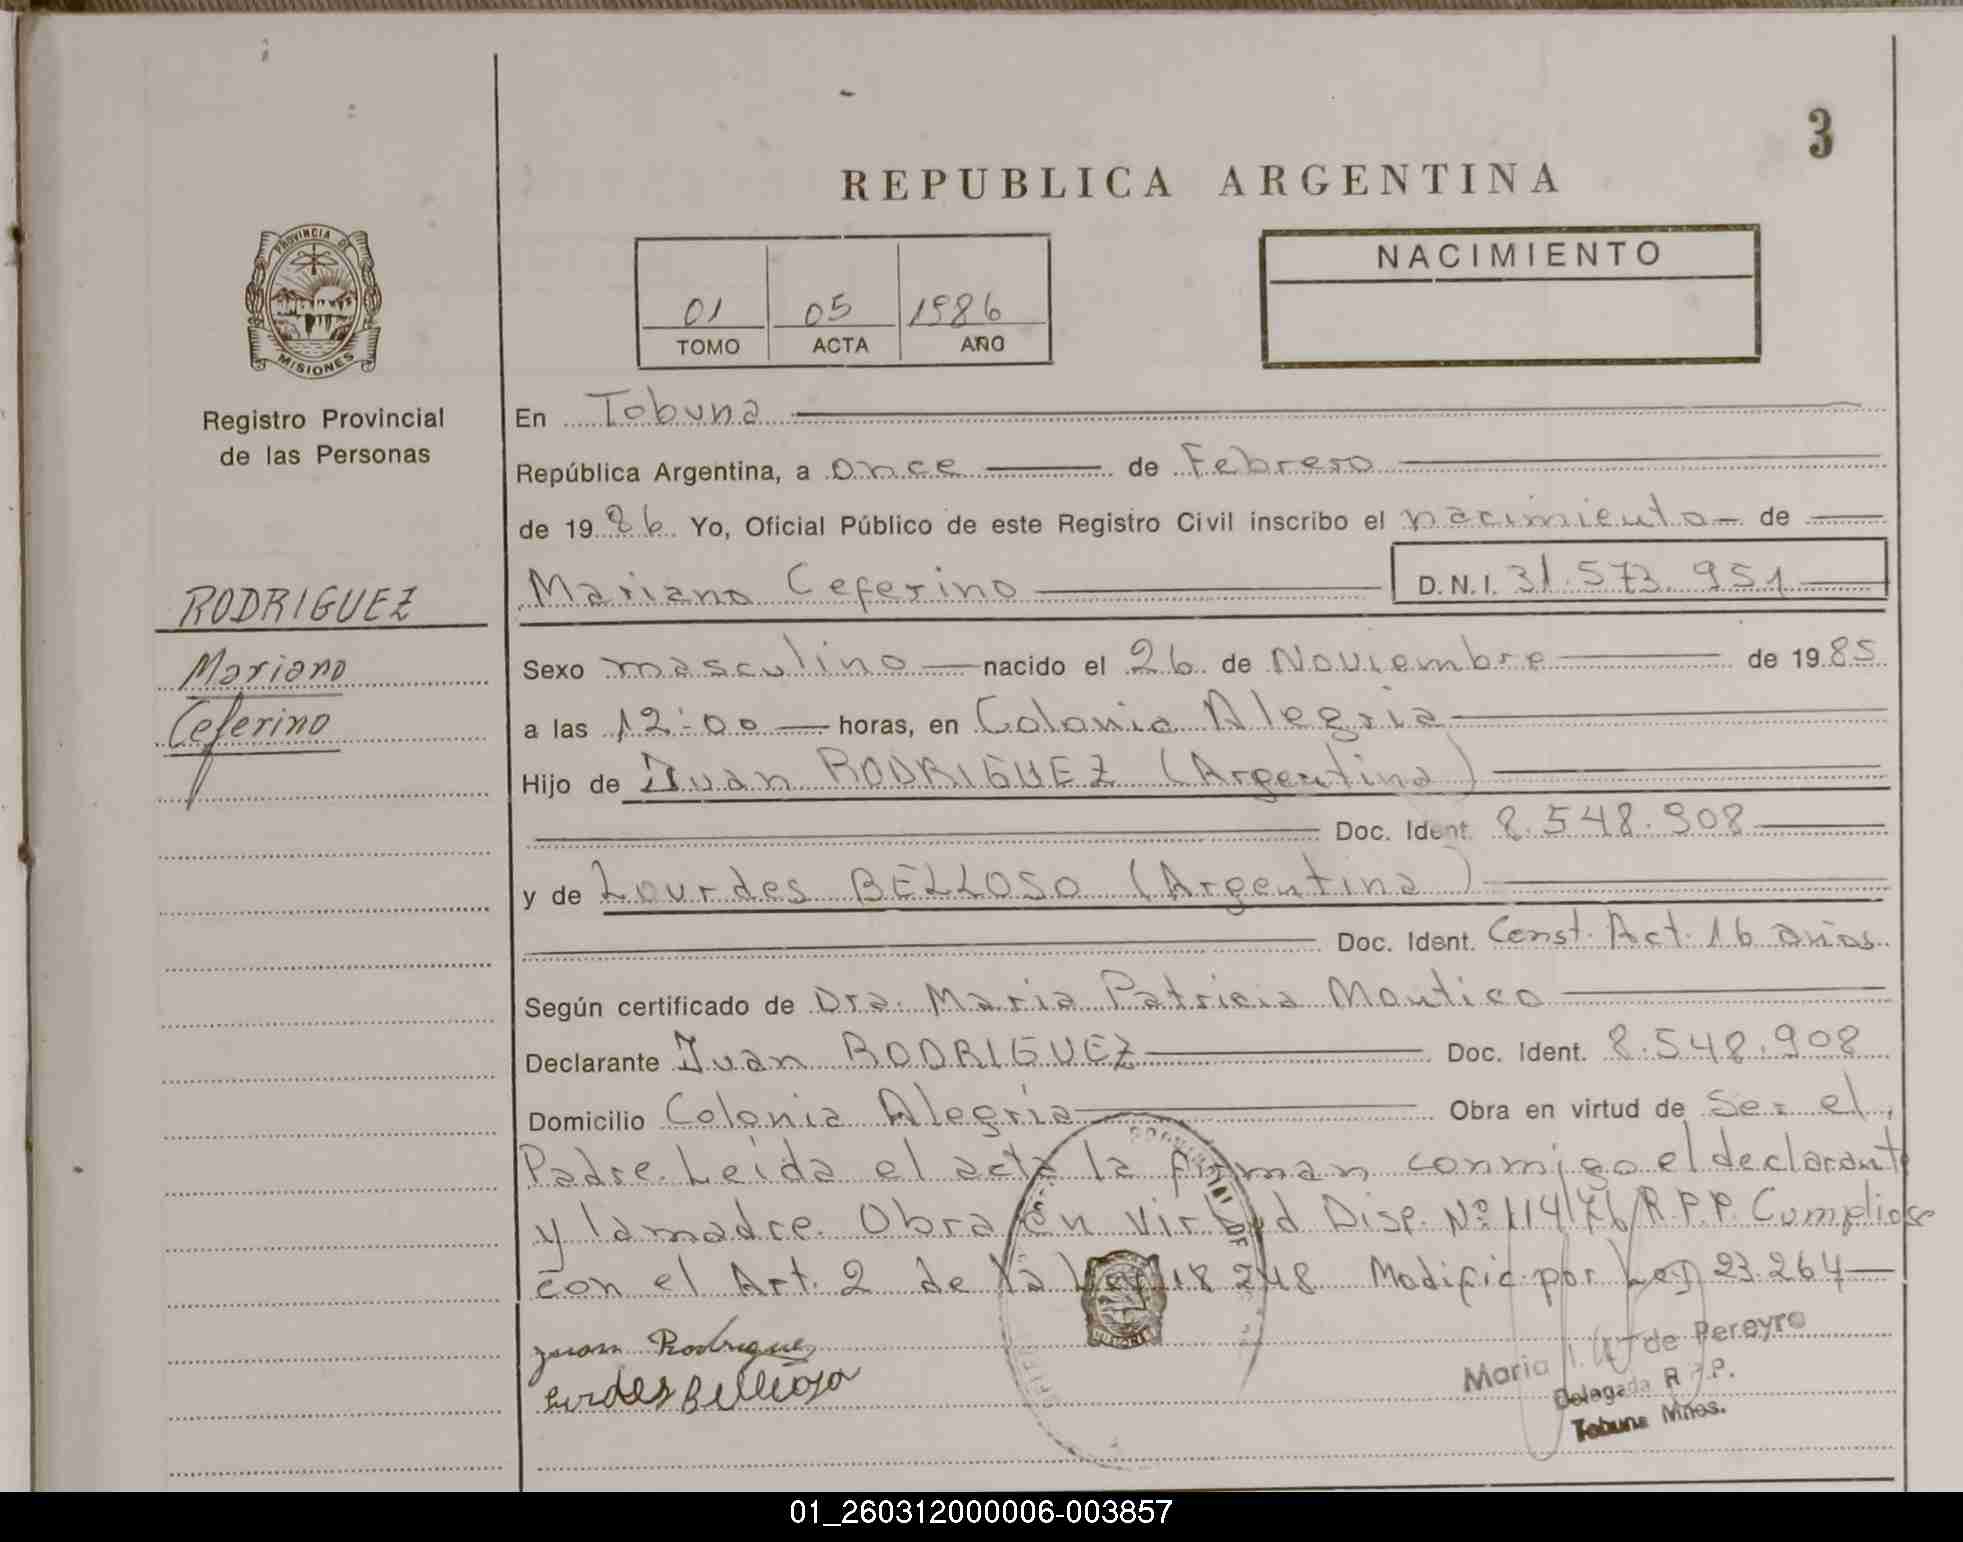 3
REPUBLICA ARGENTINA
PROVINCIA DE
MISIONES
Registro Provincial
de las Personas
01 05 1986
TOMO ACTA AÑO
NACIMIENTO
RODRIGUEZ
Mariano
Ceferino
En Tobuna
República Argentina, a once de Febrero
de 1986. Yo, Oficial Público de este Registro Civil inscribo el nacimiento de
Mariano Ceferino D.N.I. 31.573.951
Sexo masculino nacido el 26 de Noviembre de 1985
a las 12:00 horas, en Colonia Alegria
Hijo de Juan RODRIGUEZ (Argentina)
Doc. Ident. 8.548.908
y de Lourdes BELLOSO (Argentina)
Doc. Ident. Const. Act. 16 años.
Según certificado de Dra. Maria Patricia Moutico
Declarante Juan RODRIGUEZ Doc. Ident. 8.548.908
Domicilio Colonia Alegría Obra en virtud de Ser el
Padre. Leída el acta la firman conmigo el declarante
y la madre. Obra en virtud Disp. Nº 114/76 R.P.P. Cumpliose
con el Art. 2 de la Ley 18248 Modific. por Ley 23.264
Juan Rodriguez
Maria de Pereyra
Delegada R.P.P.
Tobuna Mnes.
01_260312000006-003857